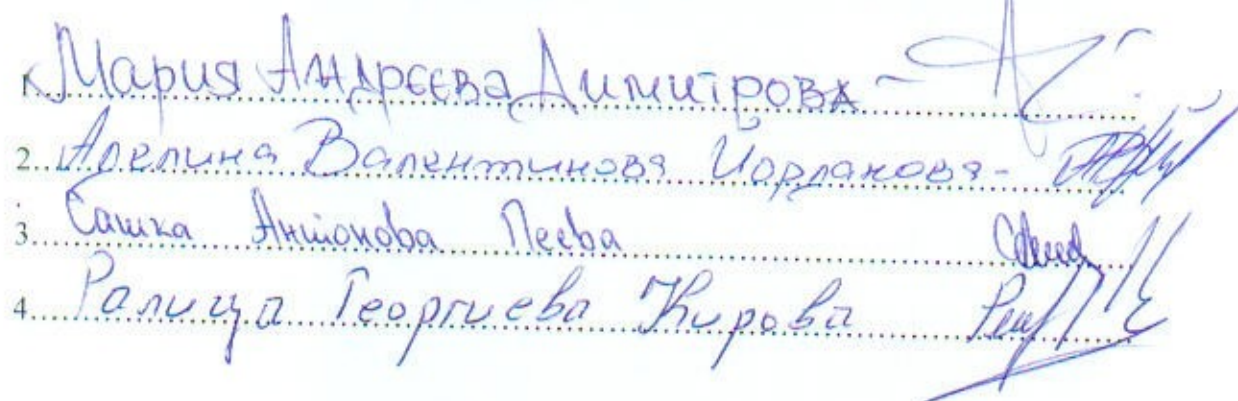 1. Мария Андреева Димитрова -
2. Аделина Валентинова Йорданова -
3. Сашка Антонова Пеева
4. Ралица Георгиева Кирова